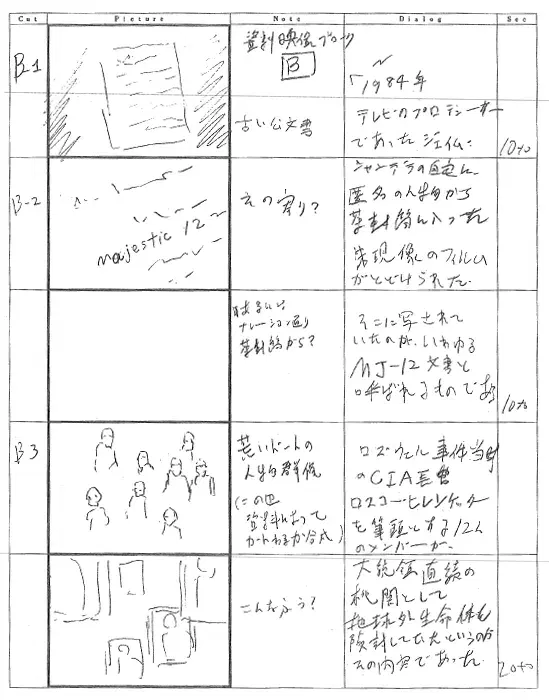 Cut Picture Note Dialog Sec
B-1
資料映像ブロック
B
古い公文書
「1984年
テレビのプロデューサー
であったジェイム・
10+0
B-2
majestic 12
その寄り?
シャンデラの自宅に
匿名の人物から
茶封筒に入った
未現像のフィルム
がとどけられた。
あるいは
ナレーション通り
茶封筒から?
そこに写されて
いたのが、いわゆる
MJ-12文書と
呼ばれるものである
10+0
B3
荒いドットの
人物群像
(この辺
資料によって
かわるか合成)
ロズウェル事件当時
のCIA長官
ロスコー・ヒレンケッター
を筆頭とする12人
のメンバーが、
こんなふう?
大統領直績の
機関として
地球外生命体を
検討していたというのが
その内容であった。
20+0